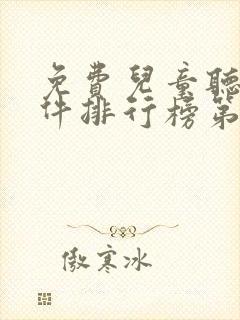 免費兒童聽
件排行榜第
傲寒冰